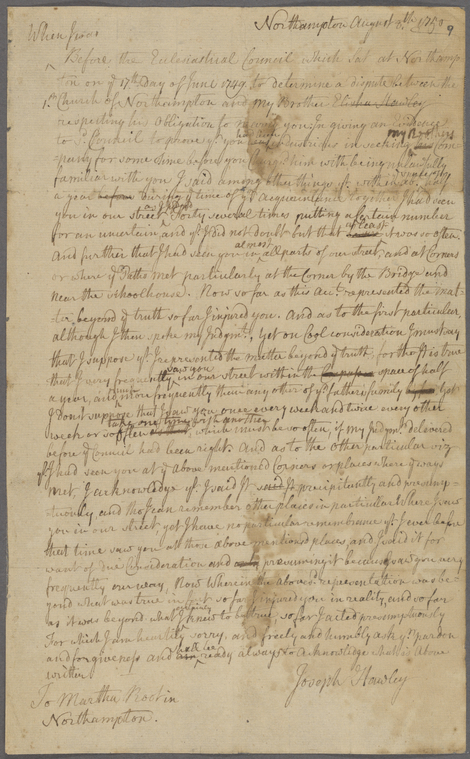 Northampton August 8.th 1750
9
When I was
Before the Eclesiastical Council which Sat at Northamp-
ton on ye 17th Day of June 1749 to determine a dispute between the
1.st Church of Northampton and my Brother Elisha Hawley
respecting his Obligation to marry you In giving an
to sd Council to prove yt you had been in seeking my Brothers Com-
pany for some time before you charg'd him with being unlawfully
familiar with you I said among other things yt within half
a year before during ye time of yr Acquaintance together I had seen
you in our street Forty several times putting a certain number
for an uncertain and yt I did not doubt but that at least it was so often
And further that I had seen you in almost all parts of our street, and at Corners
or where ye Paths met particularly at the Corner by the Bridge and
near the Schoolhouse. Now so far as this represented the mat-
ter beyond ye truth so far I injured you. And as to the first particular,
although I then spoke my Judgmt, yet on Cool consideration I must say
that I suppose yt I represented the matter beyond ye truth, for tho it is true
that I very frequently saw you in our street within the space of half
a year, and much more frequently than any other of yr fathers family yet
I don't suppose that I saw you once every week and twice every other
week or so often take one time with another, which must be so often, if my Judgmt delivered
before ye Council had been right. And as to the other particular viz
yt I had seen you at ye above mentioned Corners or places where ye ways
met, I acknowledge yt I said It so precipitently and presump-
tuously and tho I can remember other places in particular where I saw
you in our street, yet I have no particular remembrance yt I ever before
that time saw you at those above mentioned places and I said it for
want of due Consideration and presuming it because I saw you very
frequently one way. Now Wherein the above sd representation was be-
yond what was true in fact so far I injured you in reality, and so far
as it was beyond what I certainly knew to be true, so far I acted presumptuously
For which I am heartily sorry, and freely and humbly ask yr pardon
and forgiveness and shall be ready always to acknowledge what is above
written
Joseph Hawley
To Martha Root in
Northampton.